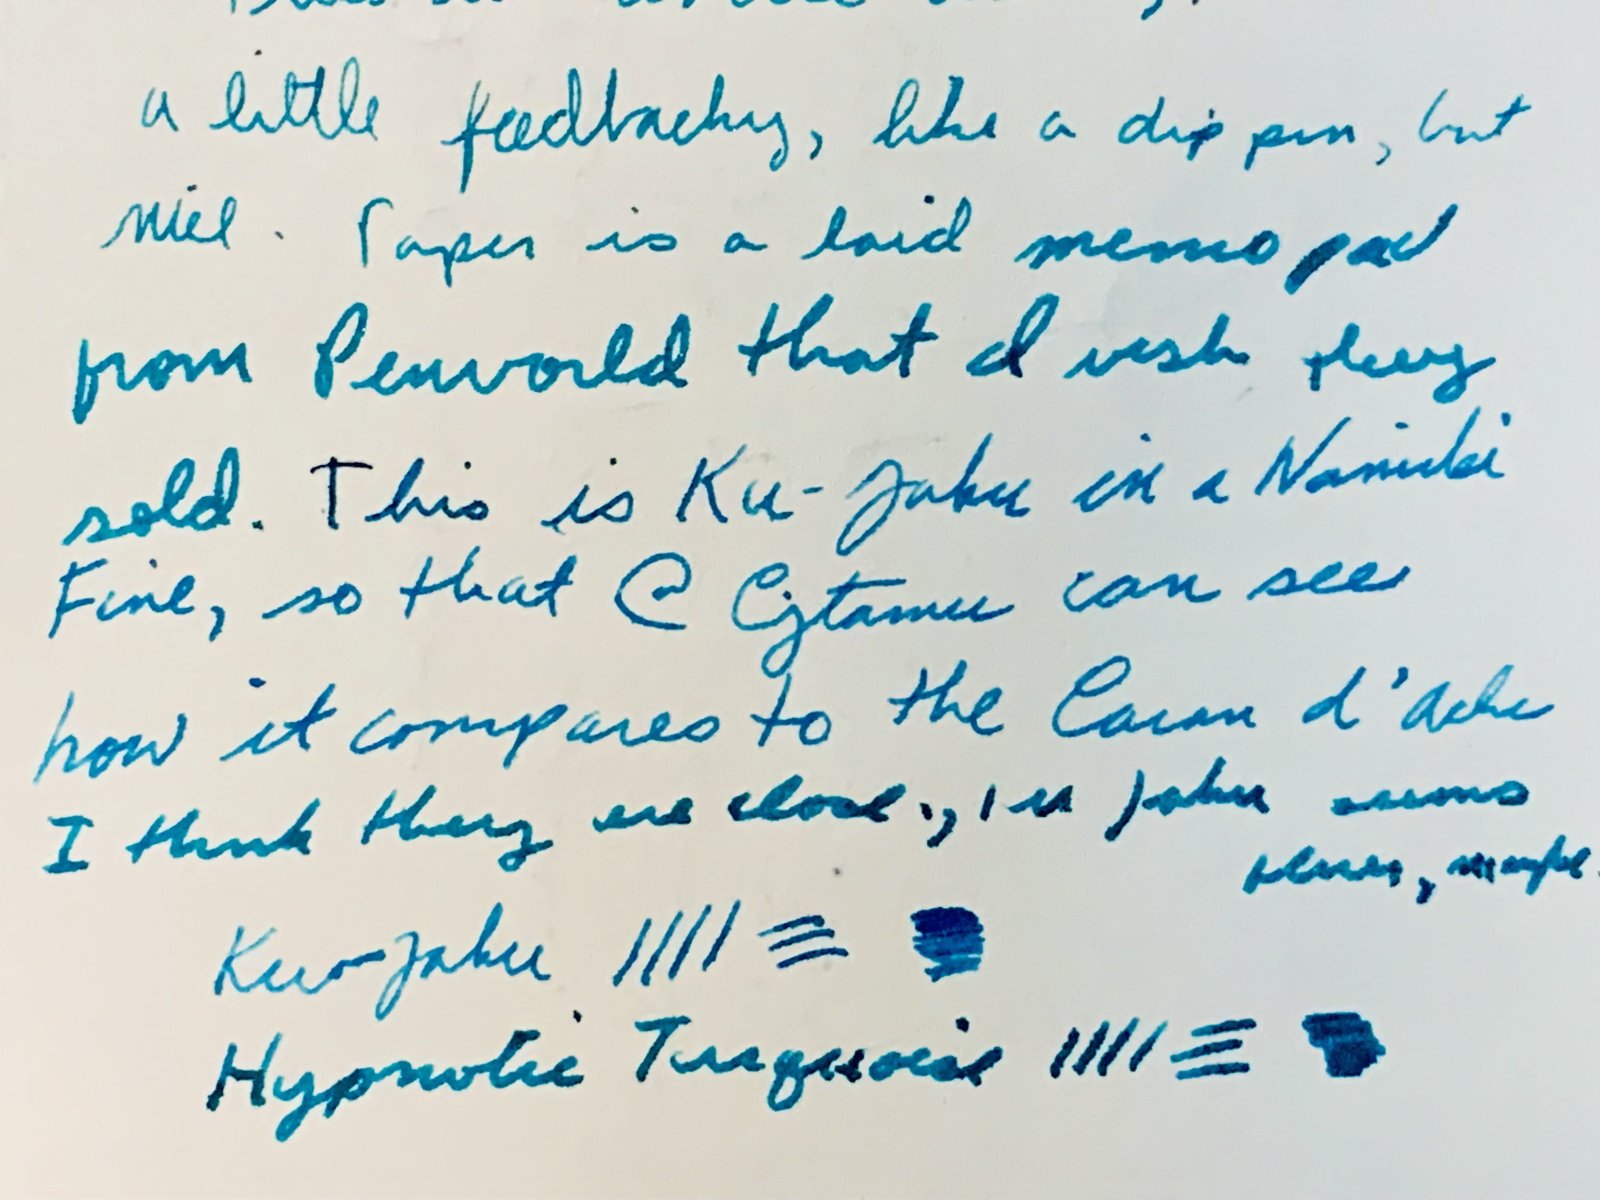 a little feedbacky, like a dip pen, but
nice. Paper is a laid memo pad
from Penworld that I wish they
sold. This is Ku-Jaku in a Namiki
Fine, so that @ Cjtamu can see
how it compares to the Caran d'Ache
I think they are close., Ku Jaku seems
, maybe.
Ku-Jaku
Hypnotic Turquoise